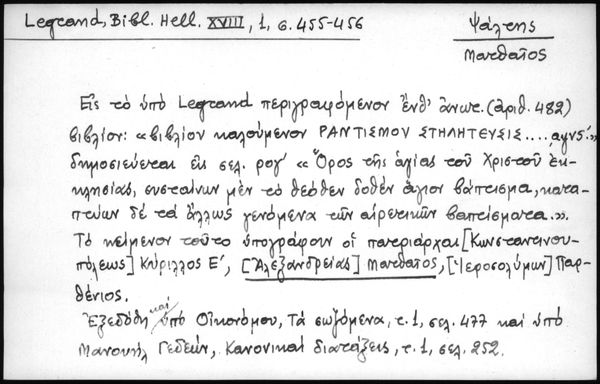 Legrand, Bibl. Hell. XVIII, 1, σ. 455-456
Ψάλτης
Ματθαῖος
Εἰς τὸ ὑπὸ Legrand περιγραφόμενον ἔνθ' ἀνωτ. (ἀριθ. 482)
βιβλίον: «βιβλίον καλούμενον ΡΑΝΤΙΣΜΟΥ ΣΤΗΛΙΤΕΥΣΙΣ...., αψνς'.»
δημοσιεύεται εἰς σελ. ρογ' «Ὅρος τῆς ἁγίας τοῦ Χριστοῦ ἐκ-
κλησίας, συνιστῶν μὲν τὸ θεόθεν δοθὲν ἅγιον βάπτισμα, κατα-
πτύων δὲ τὰ ἄλλως γενόμενα τῶν αἱρετικῶν βαπτίσματα.».
Τὸ κείμενον τοῦτο ὑπογράφουν οἱ πατριάρχαι [Κωνσταντινου-
πόλεως] Κύριλλος Ε', [Ἀλεξανδρείας] Ματθαῖος, [Ἱεροσολύμων] Παρ-
θένιος.
Ἐξεδόθη καὶ ὑπὸ Οἰκονόμου, Τὰ σωζόμενα, τ. 1, σελ. 477 καὶ ὑπὸ
Μανουὴλ Γεδεών, Κανονικαὶ διατάξεις, τ. 1, σελ. 252.